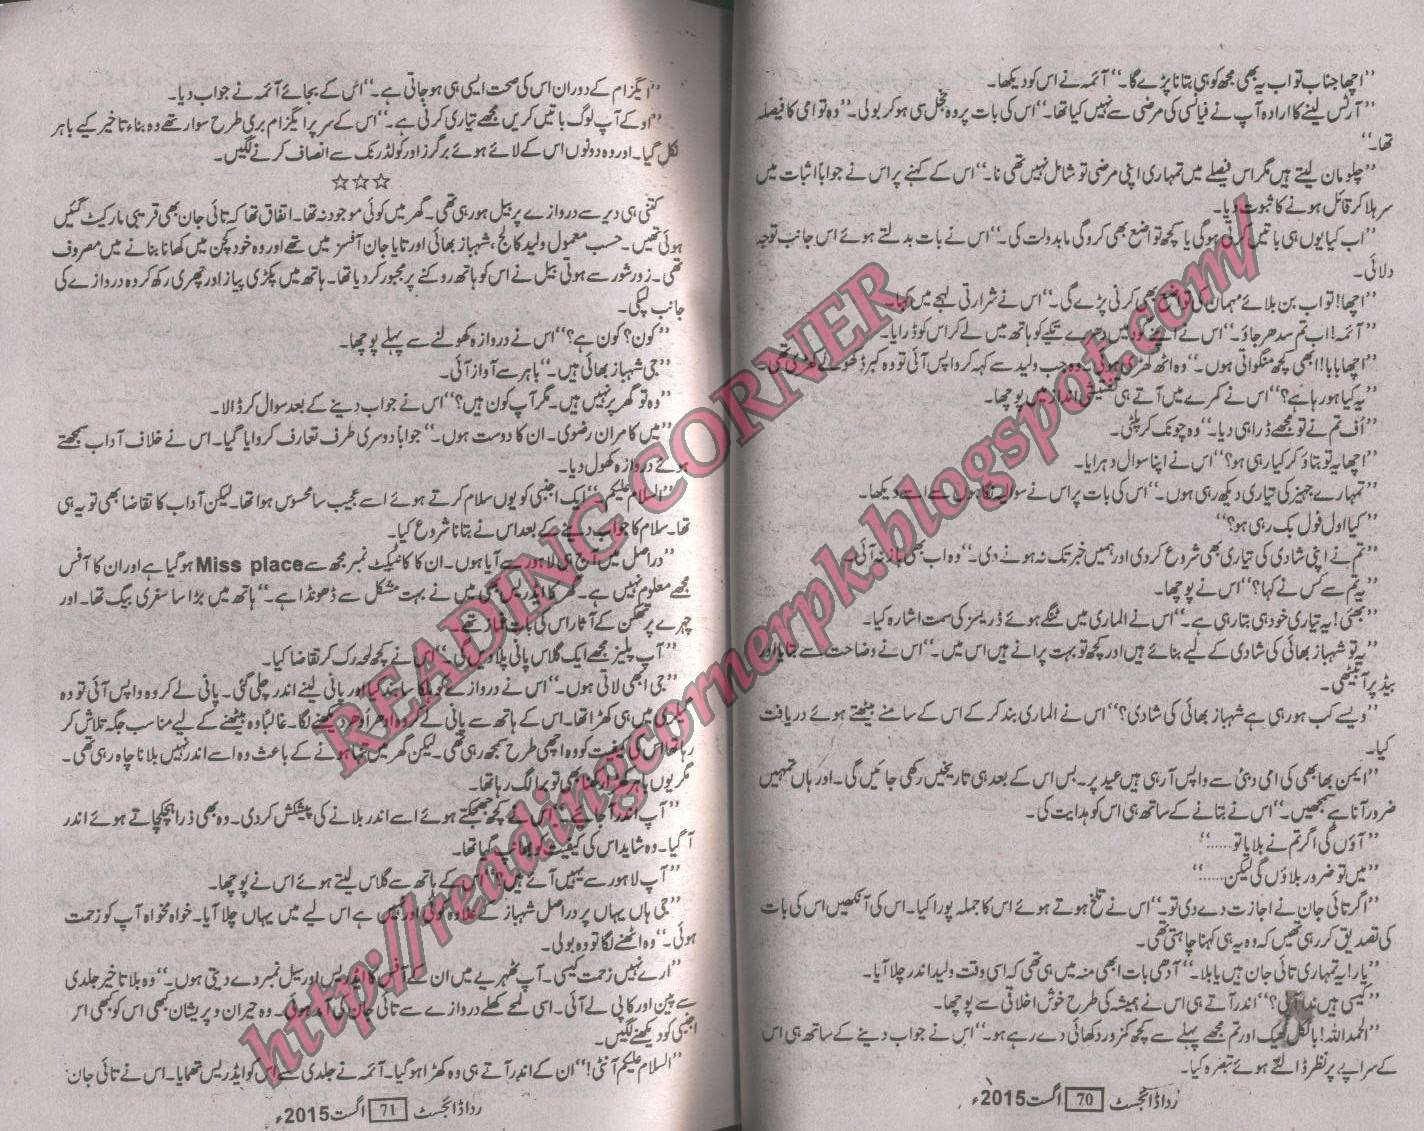 "اچھا جناب تو اب یہ بھی مجھ کو ہی بتانا پڑے گا۔" آئمہ نے اس کو دیکھا۔
"آرٹس لینے کا ارادہ آپ نے فیانسی کی مرضی سے نہیں کیا تھا۔" اس کی بات پر وہ خجل سی ہو کر بولی۔ "وہ تو امی کا فیصلہ
تھا۔"
"چلو مان لیتے ہیں مگر اس فیصلے میں تمہاری اپنی مرضی تو شامل نہیں تھی نا۔" اس کے کہنے پر اس نے جواباً اثبات میں
سر ہلا کر قائل ہونے کا ثبوت دیا۔
"اب کیا یوں ہی باتیں کرنی ہوگی یا کچھ تواضع بھی کرو گی مابدولت کی۔" اس نے بات بدلتے ہوئے اس جانب توجہ
دلائی۔
"اچھا! تو اب بن بلائے مہمان کی تواضع بھی کرنی پڑے گی۔" اس نے شرارتی لہجے میں کہا۔
"آئمہ! اب تم سدھر جاؤ۔" اس نے اپنے گود میں دھرے تکیے کو ہاتھ میں لے کر اس کو ڈرایا۔
"اچھا بابا! ابھی کچھ منگواتی ہوں۔" وہ اٹھ کھڑی ہوئی۔ وہ جب ولید سے کہہ کر واپس آئی تو وہ کبرڈ کھولے کھڑی تھی۔
"یہ کیا ہو رہا ہے؟" اس نے کمرے میں آتے ہی تفتیشی انداز میں پوچھا۔
"اُف تم نے تو مجھے ڈرا ہی دیا۔" وہ چونک کر پلٹی۔
"اچھا یہ تو بتاؤ کر کیا رہی ہو؟" اس نے اپنا سوال دہرایا۔
"تمہارے جہیز کی تیاری دیکھ رہی ہوں۔" اس کی بات پر اس نے سوالیہ نگاہوں سے اسے دیکھا۔
"کیا اول فول بک رہی ہو؟"
"تم نے اپنی شادی کی تیاری بھی شروع کر دی اور ہمیں خبر تک نہ ہونے دی۔" وہ اب بھی باز نہ آئی۔
"یہ تم سے کس نے کہا؟" اس نے پوچھا۔
"بھئی! یہ تیاری خود ہی بتا رہی ہے۔" اس نے الماری میں ٹنگے ہوئے ڈریسز کی سمت اشارہ کیا۔
"یہ تو شہباز بھائی کی شادی کے لیے بنائے ہیں اور کچھ تو بہت پرانے ہیں اس میں۔" اس نے وضاحت سے بتایا اور
بیڈ پر آ بیٹھی۔
"ویسے کب ہو رہی ہے شہباز بھائی کی شادی؟" اس نے الماری بند کر کے اس کے سامنے بیٹھتے ہوئے دریافت
کیا۔
"ایمن بھابھی کی امی دبئی سے واپس آ رہی ہیں عید پر۔ بس اس کے بعد ہی تاریخیں رکھی جائیں گی۔ اور ہاں تمہیں
ضرور آنا ہے سمجھیں۔" اس نے بتانے کے ساتھ ہی اس کو ہدایت کی۔
"آؤں گی اگر تم نے بلایا تو......"
"میں تو ضرور بلاؤں گی لیکن......"
"اگر تائی جان نے اجازت دے دی تو۔" اس نے تلخ ہوتے ہوئے اس کا جملہ پورا کیا۔ اس کی آنکھیں اس کی بات
کی تصدیق کر رہی تھیں کہ وہ یہ ہی کہنا چاہتی تھی۔
"یار! یہ تمہاری تائی جان ہیں یا بلا۔" آدھی بات ابھی منہ میں ہی تھی کہ اسی وقت ولید اندر چلا آیا۔
"کیسی ہیں آپی؟" اندر آتے ہی اس نے ہمیشہ کی طرح خوش اخلاقی سے پوچھا۔
"الحمد اللہ! بالکل ٹھیک اور تم مجھے پہلے سے کچھ کمزور دکھائی دے رہے ہو۔" اس نے جواب دینے کے ساتھ ہی اس
کے سراپے پر نظر ڈالتے ہوئے تبصرہ کیا۔
رِدا ڈائجسٹ 70 اگست 2015ء
"ایگزام کے دوران اس کی صحت ایسی ہی ہو جاتی ہے۔" اُس کے بجائے آئمہ نے جواب دیا۔
"اوکے آپ لوگ باتیں کریں مجھے تیاری کرنی ہے۔" اس کے سر پر ایگزام بری طرح سوار تھے وہ بناء تاخیر کیے باہر
نکل گیا۔ اور وہ دونوں اس کے لائے ہوئے برگرز اور کولڈ رنک سے انصاف کرنے لگیں۔
☆☆☆
کتنی ہی دیر سے دروازے پر بیل ہو رہی تھی۔ گھر میں کوئی موجود نہ تھا۔ اتفاق تھا کہ تائی جان بھی قریبی مارکیٹ گئیں
ہوئی تھیں۔ حسب معمول ولید کالج، شہباز بھائی اور تایا جان آفسز میں تھے اور وہ خود کچن میں کھانا بنانے میں مصروف
تھی۔ زور شور سے ہوتی بیل نے اس کو ہاتھ روکنے پر مجبور کر دیا تھا۔ ہاتھ میں پکڑی پیاز اور چھری رکھ کر وہ دروازے کی
جانب لپکی۔
"کون؟ کون ہے؟" اس نے دروازہ کھولنے سے پہلے پوچھا۔
"جی شہباز بھائی ہیں۔" باہر سے آواز آئی۔
"وہ تو گھر پر نہیں ہیں۔ مگر آپ کون ہیں؟" اس نے جواب دینے کے بعد سوال کر ڈالا۔
"میں کامران رضوی۔ ان کا دوست ہوں۔" جواباً دوسری طرف تعارف کروایا گیا۔ اس نے خلاف آداب سمجھتے
ہوئے دروازہ کھول دیا۔
"السلام علیکم۔" ایک اجنبی کو یوں سلام کرتے ہوئے اسے عجیب سا محسوس ہوا تھا۔ لیکن آداب کا تقاضا بھی تو یہ ہی
تھا۔ سلام کا جواب دینے کے بعد اس نے بتانا شروع کیا۔
"دراصل میں آج ہی لاہور سے آیا ہوں۔ ان کا کانٹیکٹ نمبر مجھ سے Miss place ہو گیا ہے اور ان کا آفس
مجھے معلوم نہیں ہے۔ گھر کا ایڈریس بھی میں نے بہت مشکل سے ڈھونڈا ہے۔" ہاتھ میں بڑا سا سفری بیگ تھا۔ اور
چہرے پر تھکن کے آثار اس کی بات کے غماز تھے۔
"آپ پلیز مجھے ایک گلاس پانی پلا دیں گی۔" اس نے کچھ لمحہ رک کر تقاضا کیا۔
"جی ابھی لاتی ہوں۔" اس نے دروازے کو ہلکا سا بند کیا اور پانی لینے اندر چلی گئی۔ پانی لے کر وہ واپس آئی تو وہ
گیلری میں ہی کھڑا تھا۔ اس کے ہاتھ سے پانی لے کر وہ ادھر اُدھر دیکھنے لگا۔ غالباً وہ بیٹھنے کے لیے مناسب جگہ تلاش کر
رہا تھا اس کی کیفیت کو وہ اچھی طرح سمجھ رہی تھی۔ لیکن گھر میں تنہا ہونے کے باعث وہ اسے اندر نہیں بلانا چاہ رہی تھی۔
مگر یوں باہر کھڑا رکھنا بھی تو برا لگ رہا تھا۔
"آپ اندر آ جائیے۔" اس نے کچھ جھجکتے ہوئے اسے اندر بلانے کی پیشکش کر دی۔ وہ بھی ذرا ہچکچاتے ہوئے اندر
آ گیا۔ وہ شاید اس کی کیفیت کو بھانپ گیا تھا۔
"آپ لاہور سے یہیں آئے ہیں؟" اس کے ہاتھ سے گلاس لیتے ہوئے اس نے پوچھا۔
"جی ہاں یہاں پر دراصل شہباز کے علاوہ کوئی اور نہیں ہے اس لیے میں یہاں چلا آیا۔ خواہ مخواہ آپ کو زحمت
ہوئی۔" وہ اٹھنے لگا تو وہ بولی۔
"ارے نہیں زحمت کیسی۔ آپ ٹھہریے میں ان کے آفس کا ایڈریس اور سیل نمبر دے دیتی ہوں۔" وہ بلا تاخیر جلدی
سے پین اور کاپی لے آئی۔ اسی لمحے کھلے دروازے سے تائی جان کی آمد ہوئی۔ وہ حیران و پریشان کبھی اس کو کبھی اس
اجنبی کو دیکھنے لگیں۔
"السلام علیکم آنٹی!" ان کے اندر آتے ہی وہ کھڑا ہو گیا۔ آئمہ نے جلدی سے اس کو ایڈریس تھمایا۔ اس نے تائی جان
رِدا ڈائجسٹ 71 اگست 2015ء
READING CORNER
http://readingcornerpk.blogspot.com/